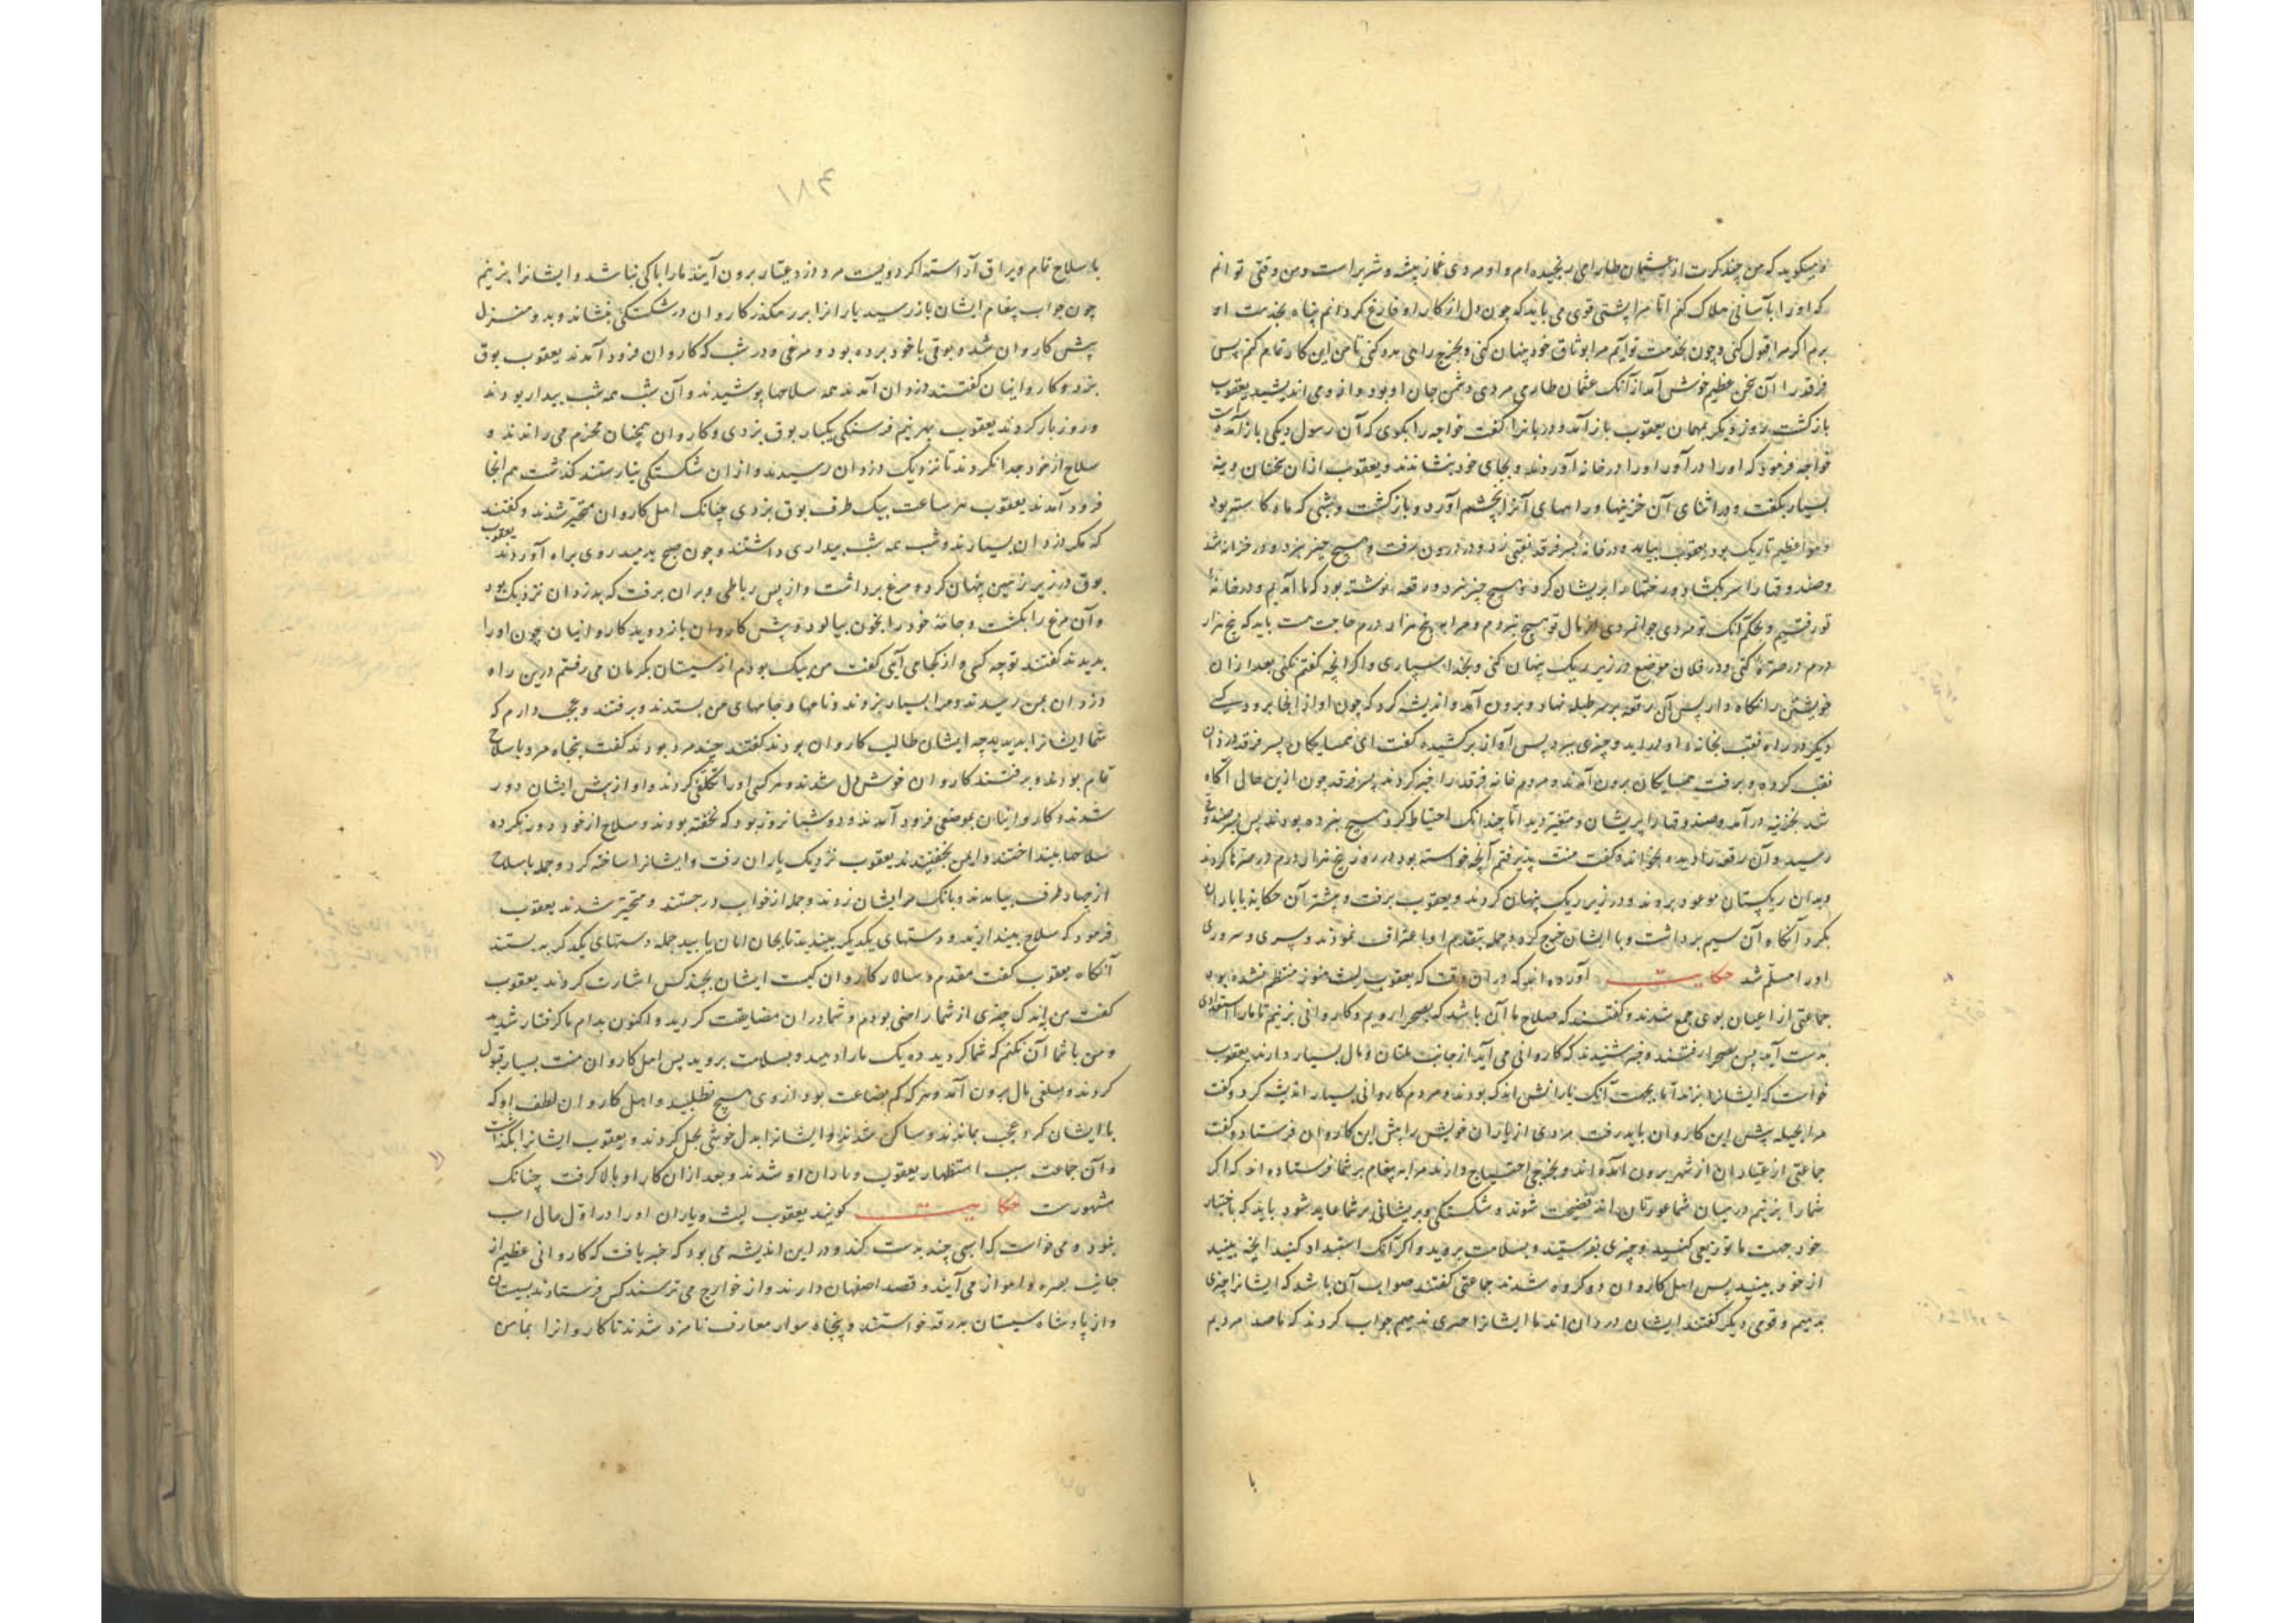 و میگوید که من چند کرت از عثمان طارابی رنجیده ام و او مردی غماز پیشه و شریر است و من وقتی توانم
که او را بآسانی هلاک کنم اما مرا پشتی قوی می باید که چون دل از کار او فارغ کردانم پناه بخدمت او
برم اکر مرا قبول کنی و چون بخدمت تو آیم مرا بوثاق خود پنهان کنی و بخرج راهی مدد کنی تا من این کار تمام کنم پس
فرقد را آن سخن عظیم خوش آمد از آنک عثمان طارابی مردی دشمن جان او بود و ازو می اندیشید یعقوب
بازکشت روز دیکر بمهمان یعقوب باز آمد و دربانرا کفت خواجه را بکوی که آن رسول دیکی باز آمده است
خواجه فرمود که او را در آور او را در خانه آوردند و بجای خود بنشاندند و یعقوب ازان سخنان دینه
بسیار بکفت و در اثنای آن خزینها و راههای آنرا بچشم آورد و بازکشت و شبی که ماه کاسته بود
و هوا عظیم تاریک بود یعقوب بیامد و در خانه پسر فرقد نقبی زد و در درون برفت و هیچ چیز نبرد و در خزانه شد
و صندوقها را سر بکشاد و رختها را پریشان کرد و هیچ چیز نبرد و رقعه نوشته بود که ما آمدیم و در خانه
تو رفتیم و بحکم آنک تو مردی جوانمردی از مال تو هیچ نبردم و مرا به پنج هزار درم حاجت است باید که پنج هزار
درم در صره کنی و در فلان موضع در زیر ریک پنهان کنی و بخدا سپاری و اکر آنچه کفتم نکنی بعد ازان
خویشتن را نکاه دار پس آن رقعه بر سر طبله نهاد و برون آمد و اندیشه کرد که چون او از آنجا برود کسی
دیکر در راه نقب بخانه او در آید و چیزی ببرد پس آواز برکشید کفت ای همسایکان پسر فرقد دزدان
نقب کرده و برفت همسایکان برون آمدند و مردم خانه فرقد را خبر کردند پسر فرقد چون ازین حال آکاه
شد بخزینه در آمد و صندوقها را پریشان و متغیر دید اما چندانک احتیاط کرد هیچ نبرده بودند پس بسر صندوق
رسید و آن رقعه را دید و بخواند و کفت منت پذیرفتم آنچه خواسته بود در روز پنج هزار درم در صره ها کردند
و بدان ریکستان موعود بردند و در زیر ریک پنهان کردند و یعقوب برفت و پیشتر آن حکایه با یاران
بکرد آنکاه آن سیم برداشت و با ایشان خرج کرد و جمله بتقدم او اعتراف نمودند و سری و سروری
او را مسلم شد حکایت آورده اند که دران وقت که یعقوب لیث هنوز منتظم نشده بود
جماعتی از اعیان بوی جمع شدند و کفتند که صلاح ما آن باشد که بصحرا رویم و کاروانی بزنیم تا ما را استعدادی
بدست آید پس بصحرا رفتند و خبر شنیدند که کاروانی می آید از جانب ملتان و مال بسیار دارند یعقوب
خواست که ایشانرا بزند اما بجهت آنک یارانش اندک بودند و مردم کاروانی بسیار اندیشه کرد و کفت
مرا بحیله پیش این کاروان باید رفت مردی از یاران خویش را پیش این کاروان فرستاد و کفت
جماعتی از عیاران از شهر برون آمده اند و بخرجی احتیاج دارند مرا به پیغام بر شما فرستاده اند که اکر
شما را بزنیم در میان شما عورتان اند فضیحت شوند و شکستکی و پریشانی بر شما عاید شود باید که باختیار
خود جهت ما توزیعی کنید و چیزی بفرستید و بسلامت بروید و اکر آنک استبداد کنید آنچه بینید
از خود بینید پس اهل کاروان دو کروه شدند جماعتی کفتند صواب آن باشد که ایشانرا چیزی
بدهیم و قومی دیکر کفتند ایشان دزدان اند ما ایشانرا چیزی ندهیم جواب کردند که ما صد مردیم
با
۱۸۴
با سلاح تمام و یراق آراسته اکر دویست مرد دزد و عیار برون آیند ما را باکی نباشد و ایشانرا بزنیم
چون جواب پیغام ایشان باز رسید یارانرا بر رهکذر کاروان در شکستکی بنشاند و بدو منزل
پیش کاروان شد و بوقی با خود برده بود و مرغی و در شب که کاروان فرود آمدند یعقوب بوق
بزد و کاروانیان کفتند دزدان آمدند همه سلاحها پوشیدند و آن شب همه شب بیدار بودند
و روز بار کردند یعقوب بهر نیم فرسنکی یکبار بوق بزدی و کاروان همچنان بحزم می راندند و
سلاح از خود جدا نکردند تا نزدیک دزدان رسیدند و ازان شکستکی نیارستند کذشت هم آنجا
فرود آمدند یعقوب هر ساعت بیک طرف بوق بزدی چنانک اهل کاروان متحیر شدند و کفتند
که مکر دزدان بسیارند و شب همه شب بیداری داشتند و چون صبح بدمید روی براه آوردند یعقوب
بوق در زیر زمین پنهان کرد و مرغ برداشت و از پس رباطی ویران برفت که بدزدان نزدیک بود
و آن مرغ را بکشت و جامه خود را بخون بیالود و پیش کاروان باز دوید کاروانیان چون او را
بدیدند کفتند تو چه کسی و از کجا می آیی کفت من پیک بودم از سیستان بکرمان می رفتم درین راه
دزدان بمن رسیدند و مرا بسیار بزدند و نامها و جامهای من بستدند و برفتند و عجب دارم که
شما ایشانرا بدیدید چه ایشان طالب کاروان بودند کفتند چند مرد بودند کفت پنجاه مرد با سلاح
تمام بودند و برفتند کاروان خوش دل شدند و هر کسی او را تکلفی کردند و او از پیش ایشان دور
شدند و کاروانیان بموضعی فرود آمدند و دو شبانروز بود که نخفته بودند و سلاح از خود دور نکرده
سلاحها بینداختند و ایمن بخفتیدند یعقوب نزدیک یاران رفت و ایشانرا ساخته کرد و جمله با سلاح
از چهار طرف بیامدند و بانک بر ایشان زدند و جمله از خواب در جستند و متحیر شدند یعقوب
فرمود که سلاح بیندازید و دستهای یکدیکر ببندید تا بجان امان یابید جمله دستهای یکدکر به بستند
آنکاه یعقوب کفت مقدم و سالار کاروان کیست ایشان بچند کس اشارت کردند یعقوب
کفت من باندک چیزی از شما راضی بودم و شما دران مضایقت کردید و اکنون بدام ما کرفتار شدید
و من با شما آن نکنم که شما کردید ده یک ما را دهید و بسلامت بروید پس اهل کاروان منت بسیار قبول
کردند و مبلغی مال برون آمد و هر که کم بضاعت بود از وی هیچ نطلبید و اهل کاروان لطف او که
با ایشان کرد عجب بماندند و ساکن شدند و ایشانرا بدل خوشی بحل کردند و یعقوب ایشانرا بکذاشت
و آن جماعت سبب استظهار یعقوب و یاران او شدند و بعد ازان کار او بالا کرفت چنانک
مشهورست حکایت کویند یعقوب لیث و یاران او را در اول حال اسب
نبود و می خواست که اسبی چند بدست کند و در این اندیشه می بود که خبر یافت که کاروانی عظیم از
جانب بصره و اهواز می آیند و قصد اصفهان دارند و از خوارج می ترسند کس فرستادند بسیستان
و از پادشاه سیستان بدرقه خواستند و پنجاه سوار معارف نامزد شدند تا کاروانرا بمأمن